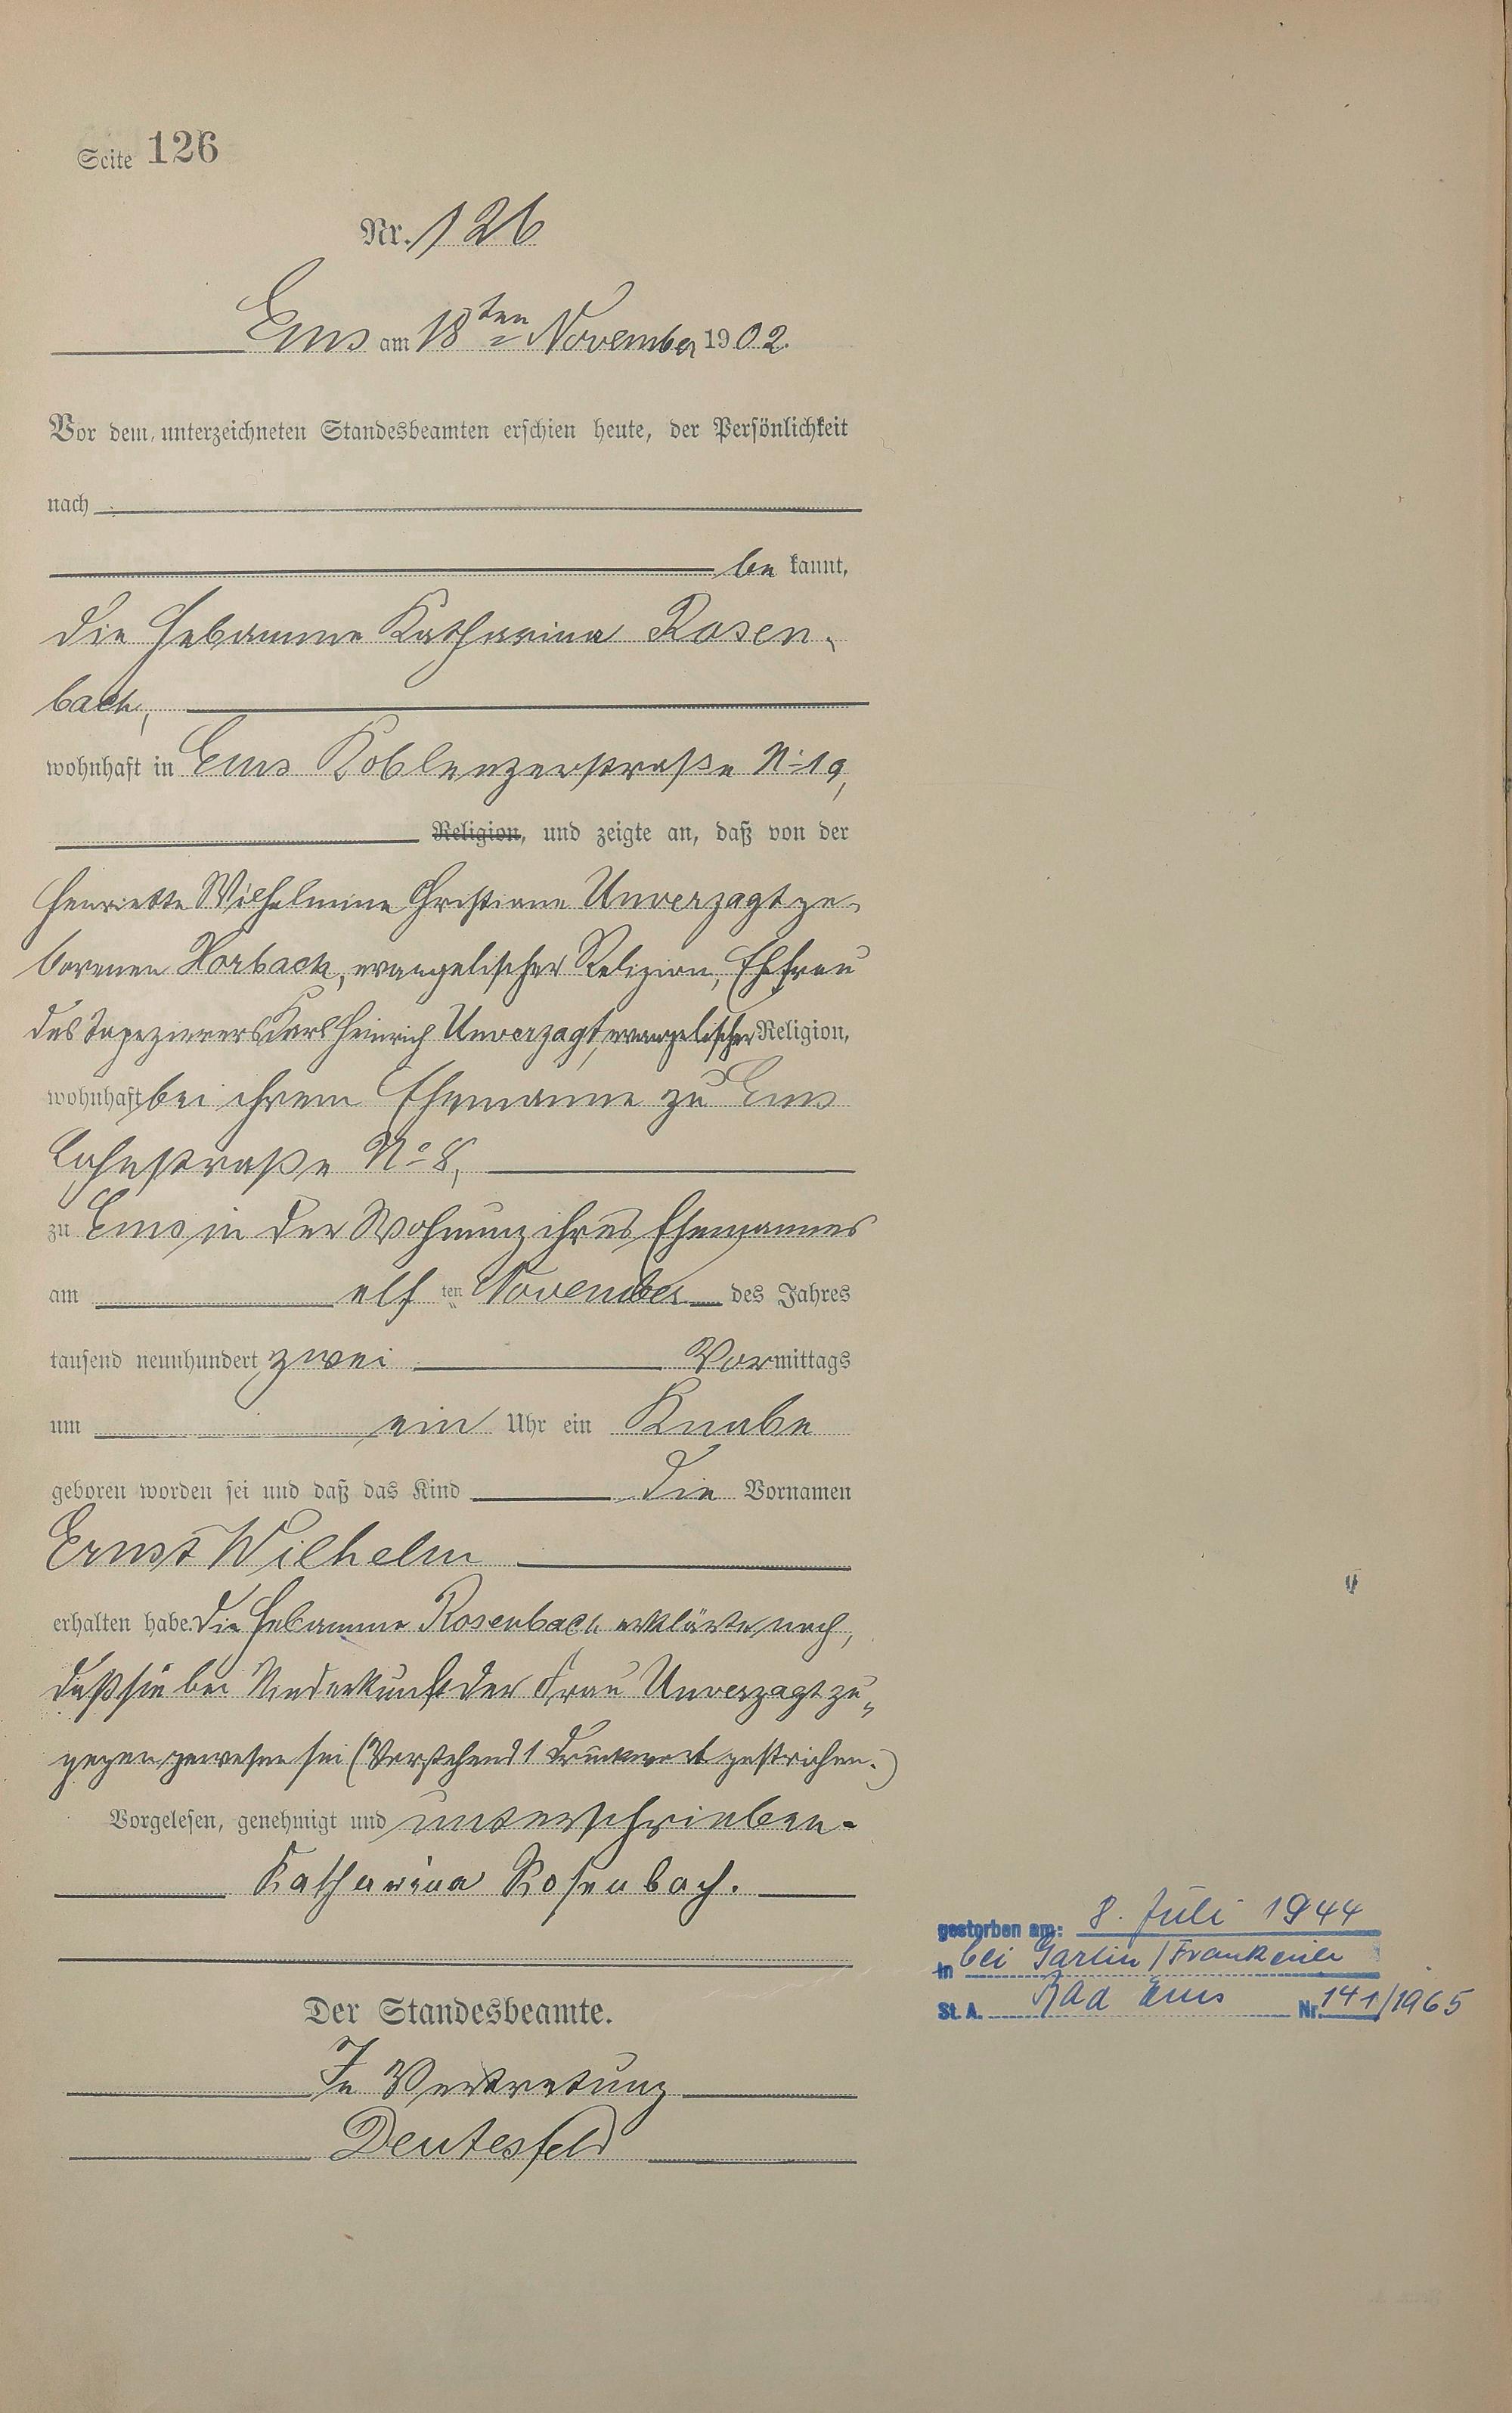 Seite 126
Nr. 126
Ems am 18ten November 1902.
Vor dem unterzeichneten Standesbeamten erschien heute, der Persönlichkeit
nach
be kannt,
die Hebamme Katharina Rosen-
bach,
wohnhaft in Ems Koblenzerstraße No 19,
Religion, und zeigte an, daß von der
Henriette Wilhelmine Christiane Unverzagt ge-
borenen Horbach, evangelischer Religion, Ehefrau
des Tapezierers Karl Heinrich Unverzagt, evangelischer Religion,
wohnhaft bei ihrem Ehemanne zu Ems
Lahnstraße No 8,
zu Ems in der Wohnung ihres Ehemannes
am elf ten November des Jahres
tausend neunhundert zwei Vormittags
um ein Uhr ein Knabe
geboren worden sei und daß das Kind die Vornamen
Ernst Wilhelm
erhalten habe. Die Hebamme Rosenbach erklärte noch,
daß sie bei Niederkunft der Frau Unverzagt zu-
gegen gewesen sei (Vorstehend 1 Druckwort gestrichen.)
Vorgelesen, genehmigt und unterschrieben.
Katharina Rosenbach.
Der Standesbeamte.
In Vertretung
Deutesfeld
gestorben am: 8. Juli 1944
in bei Garlin / Frankreich
St. A. Bad Ems Nr. 141/1965